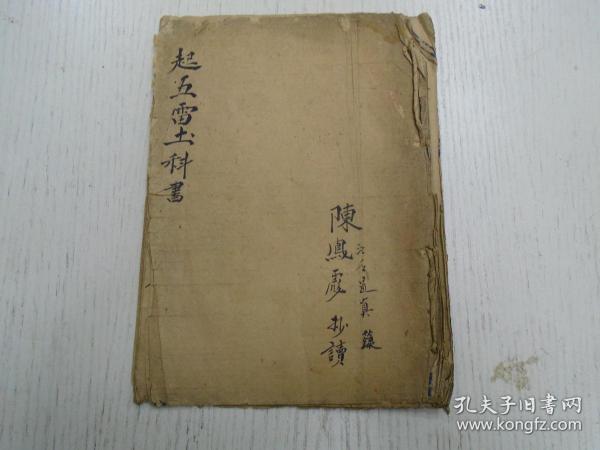 起五雷土科書
陳鳳彩抄讀
道真
孔夫子旧书网
www.kongfz.com